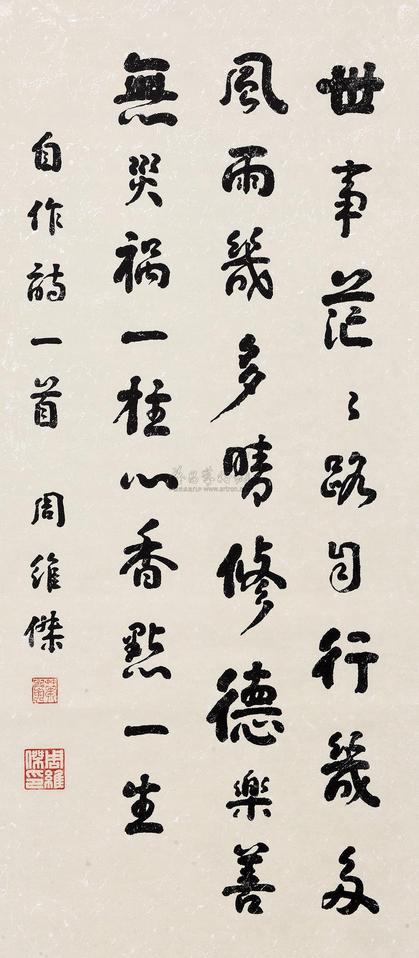 世事茫〻路自行幾多
風雨幾多晴修德樂善
無災禍一柱心香點一生
自作詩一首 周維傑
周維傑印